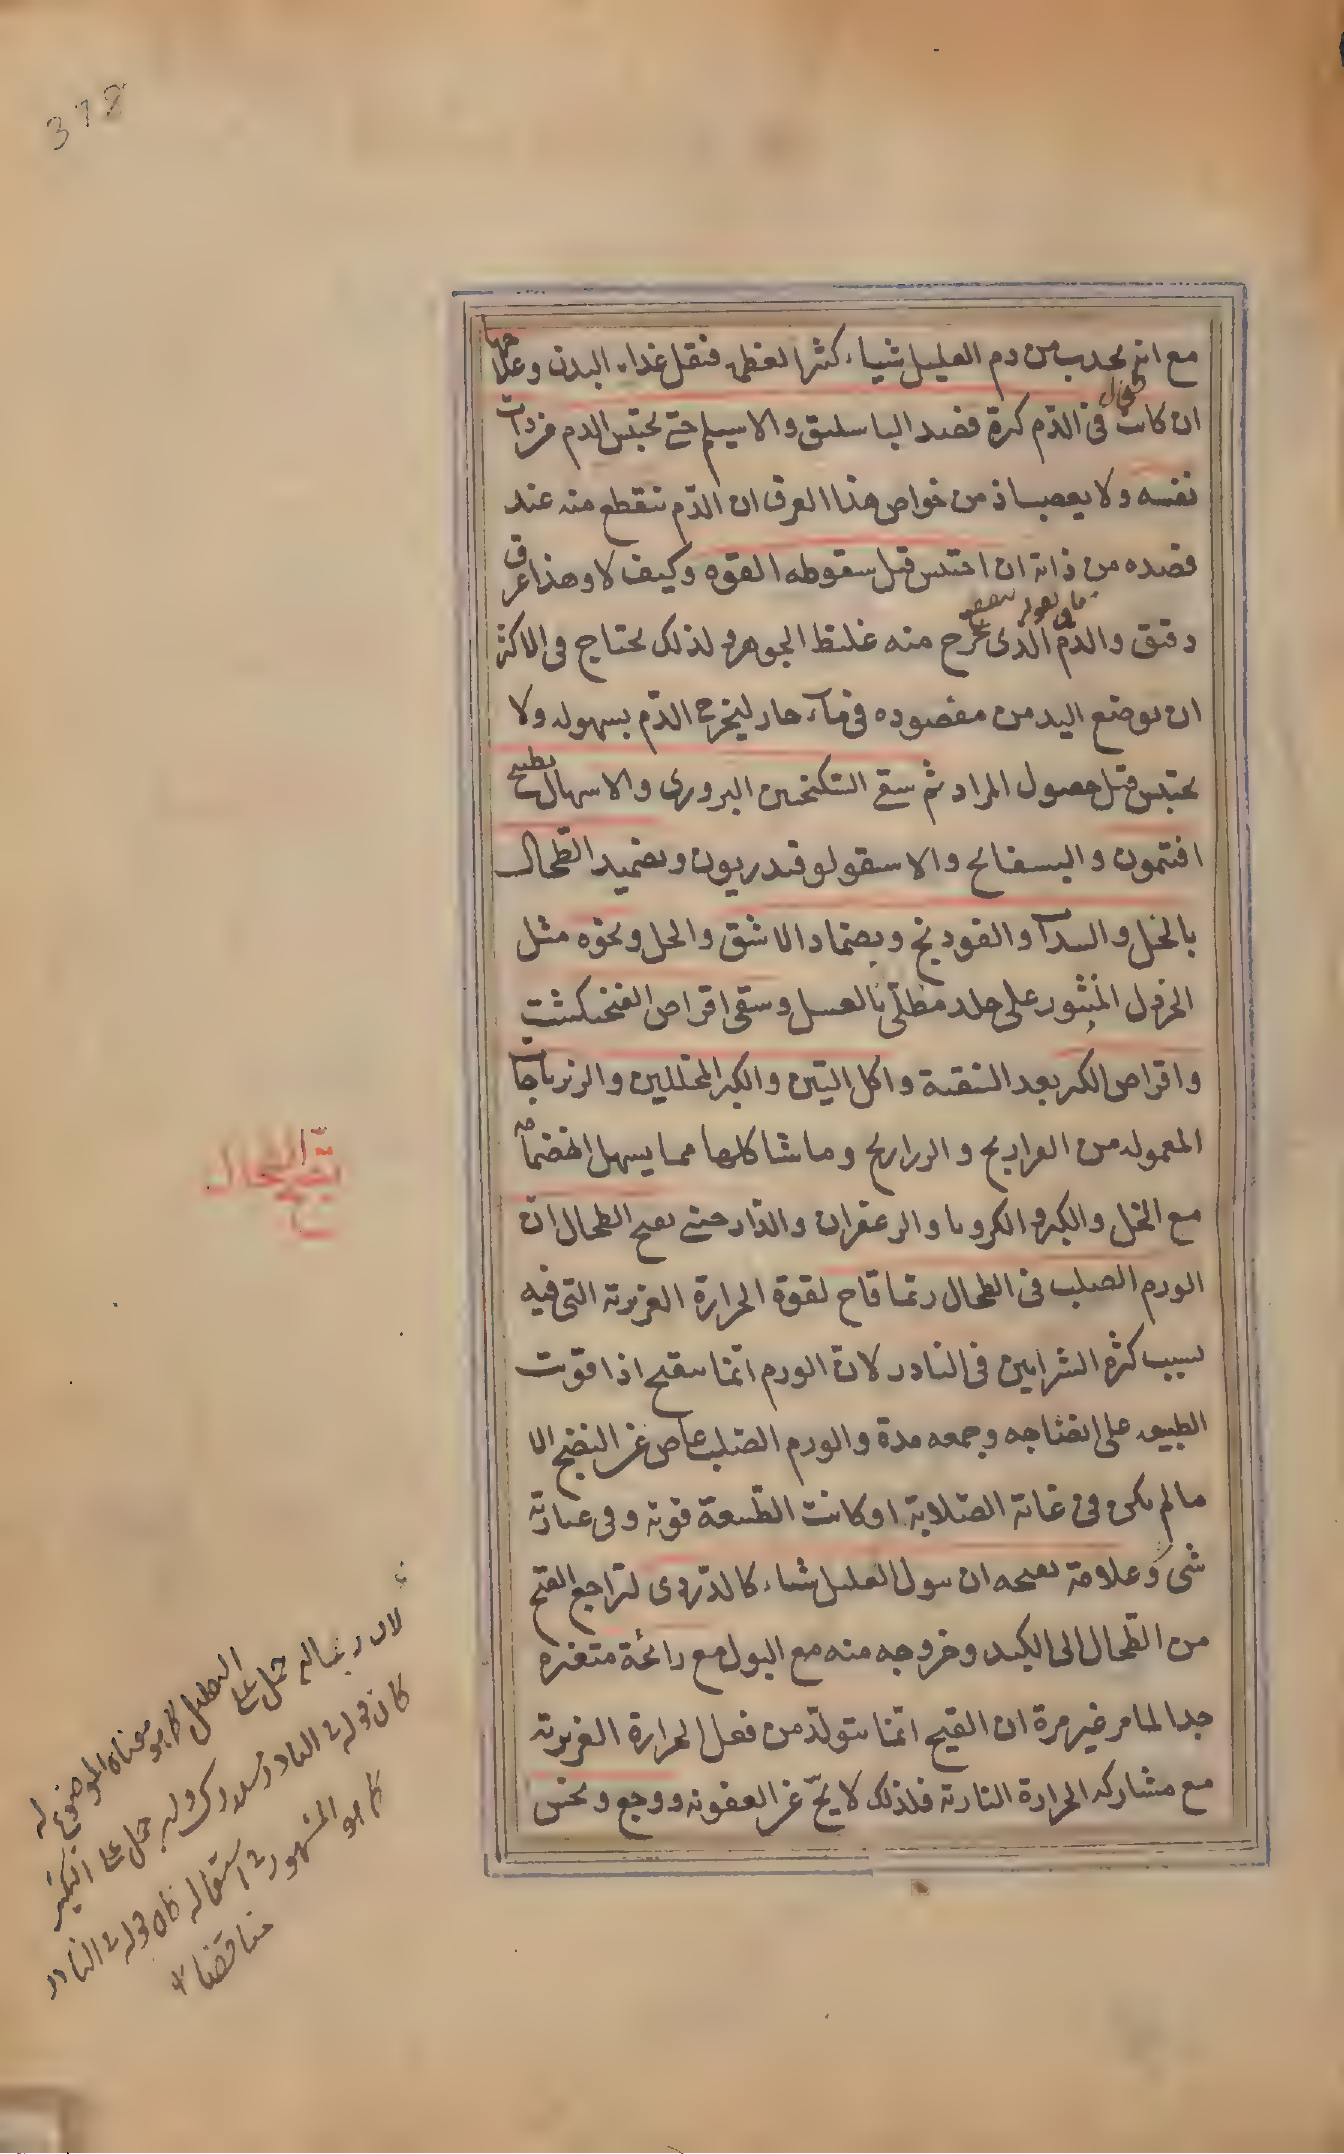 378
مع انه يجذب من دم العليل شياء كثيرا لعظمه فيقل غذاء البدن وعلاجها
ان كانت في الدم كثرة فصد الباسليق والاسيلم حتى يحتبس الدم من ذات
نفسه ولا يعصب اذ من خواص هذا العرق ان الدم ينقطع منه عند
فصده من ذاته ان احتبس قبل سقوطه القوة وكيف لا وهذا عرق
دقيق والدم الذى يخرج منه غليظ الجوهر ولذلك يحتاج فى الاكثر
ان يوضع اليد من مفصوده فى ماء حار ليخرج الدم بسهوله ولا
يحتبس قبل حصول المراد ثم سقى السكنجبين البزورى والاسهال بطبيخ
افتيمون والبسفايج والاسقولوقندريون وتضميد الطحال
بالخل والسداب والفودنج وبضماد الاشق والخل ونحوه مثل
الخردل المنثور على جلد مطلّى بالعسل وسقى اقراص الفنجنكشت
واقراص الكبر بعد التنقية واكل التين والكبر المخللين والزيرباجات
المعموله من الفراريج والدراريج وما شاكلها مما يسهل انهضامه
مع الخل والكبر والكرويا والزعفران والدارچينى تقيح الطحال ان
الورم الصلب فى الطحال ربما قاح لقوة الحرارة الغريزية التى فيه
بسبب كثرة الشرايين فى النادر لان الورم انما يتقيح اذا قويت
الطبيعه على انضاجه وجمعه مدة والورم الصلب عاص عن النضج الا
ما لم يكن فى غاية الصلابة او كانت الطبيعة قوية وفى عبارته
شى وعلامة تقيحه ان يبول العليل شياء كالدردى لتراجع القيح
من الطحال الى الكبد وخروجه منه مع البول مع رائحة متغيره
جدا لما مر غير مرة ان القيح انما يتولد من فعل الحرارة الغريزية
مع مشاركه الحرارة النارية فلذلك لا يخ عن العفونه ووجع ونخس
تقيح الطحال
لان ربما ان حمل على التقليل كما هو معناه الموضوع له
كان قوله فى النادر مستدركا وان حمل على التكثير
كما هو المشهور فى استعماله كان قوله فى النادر
مناقضا